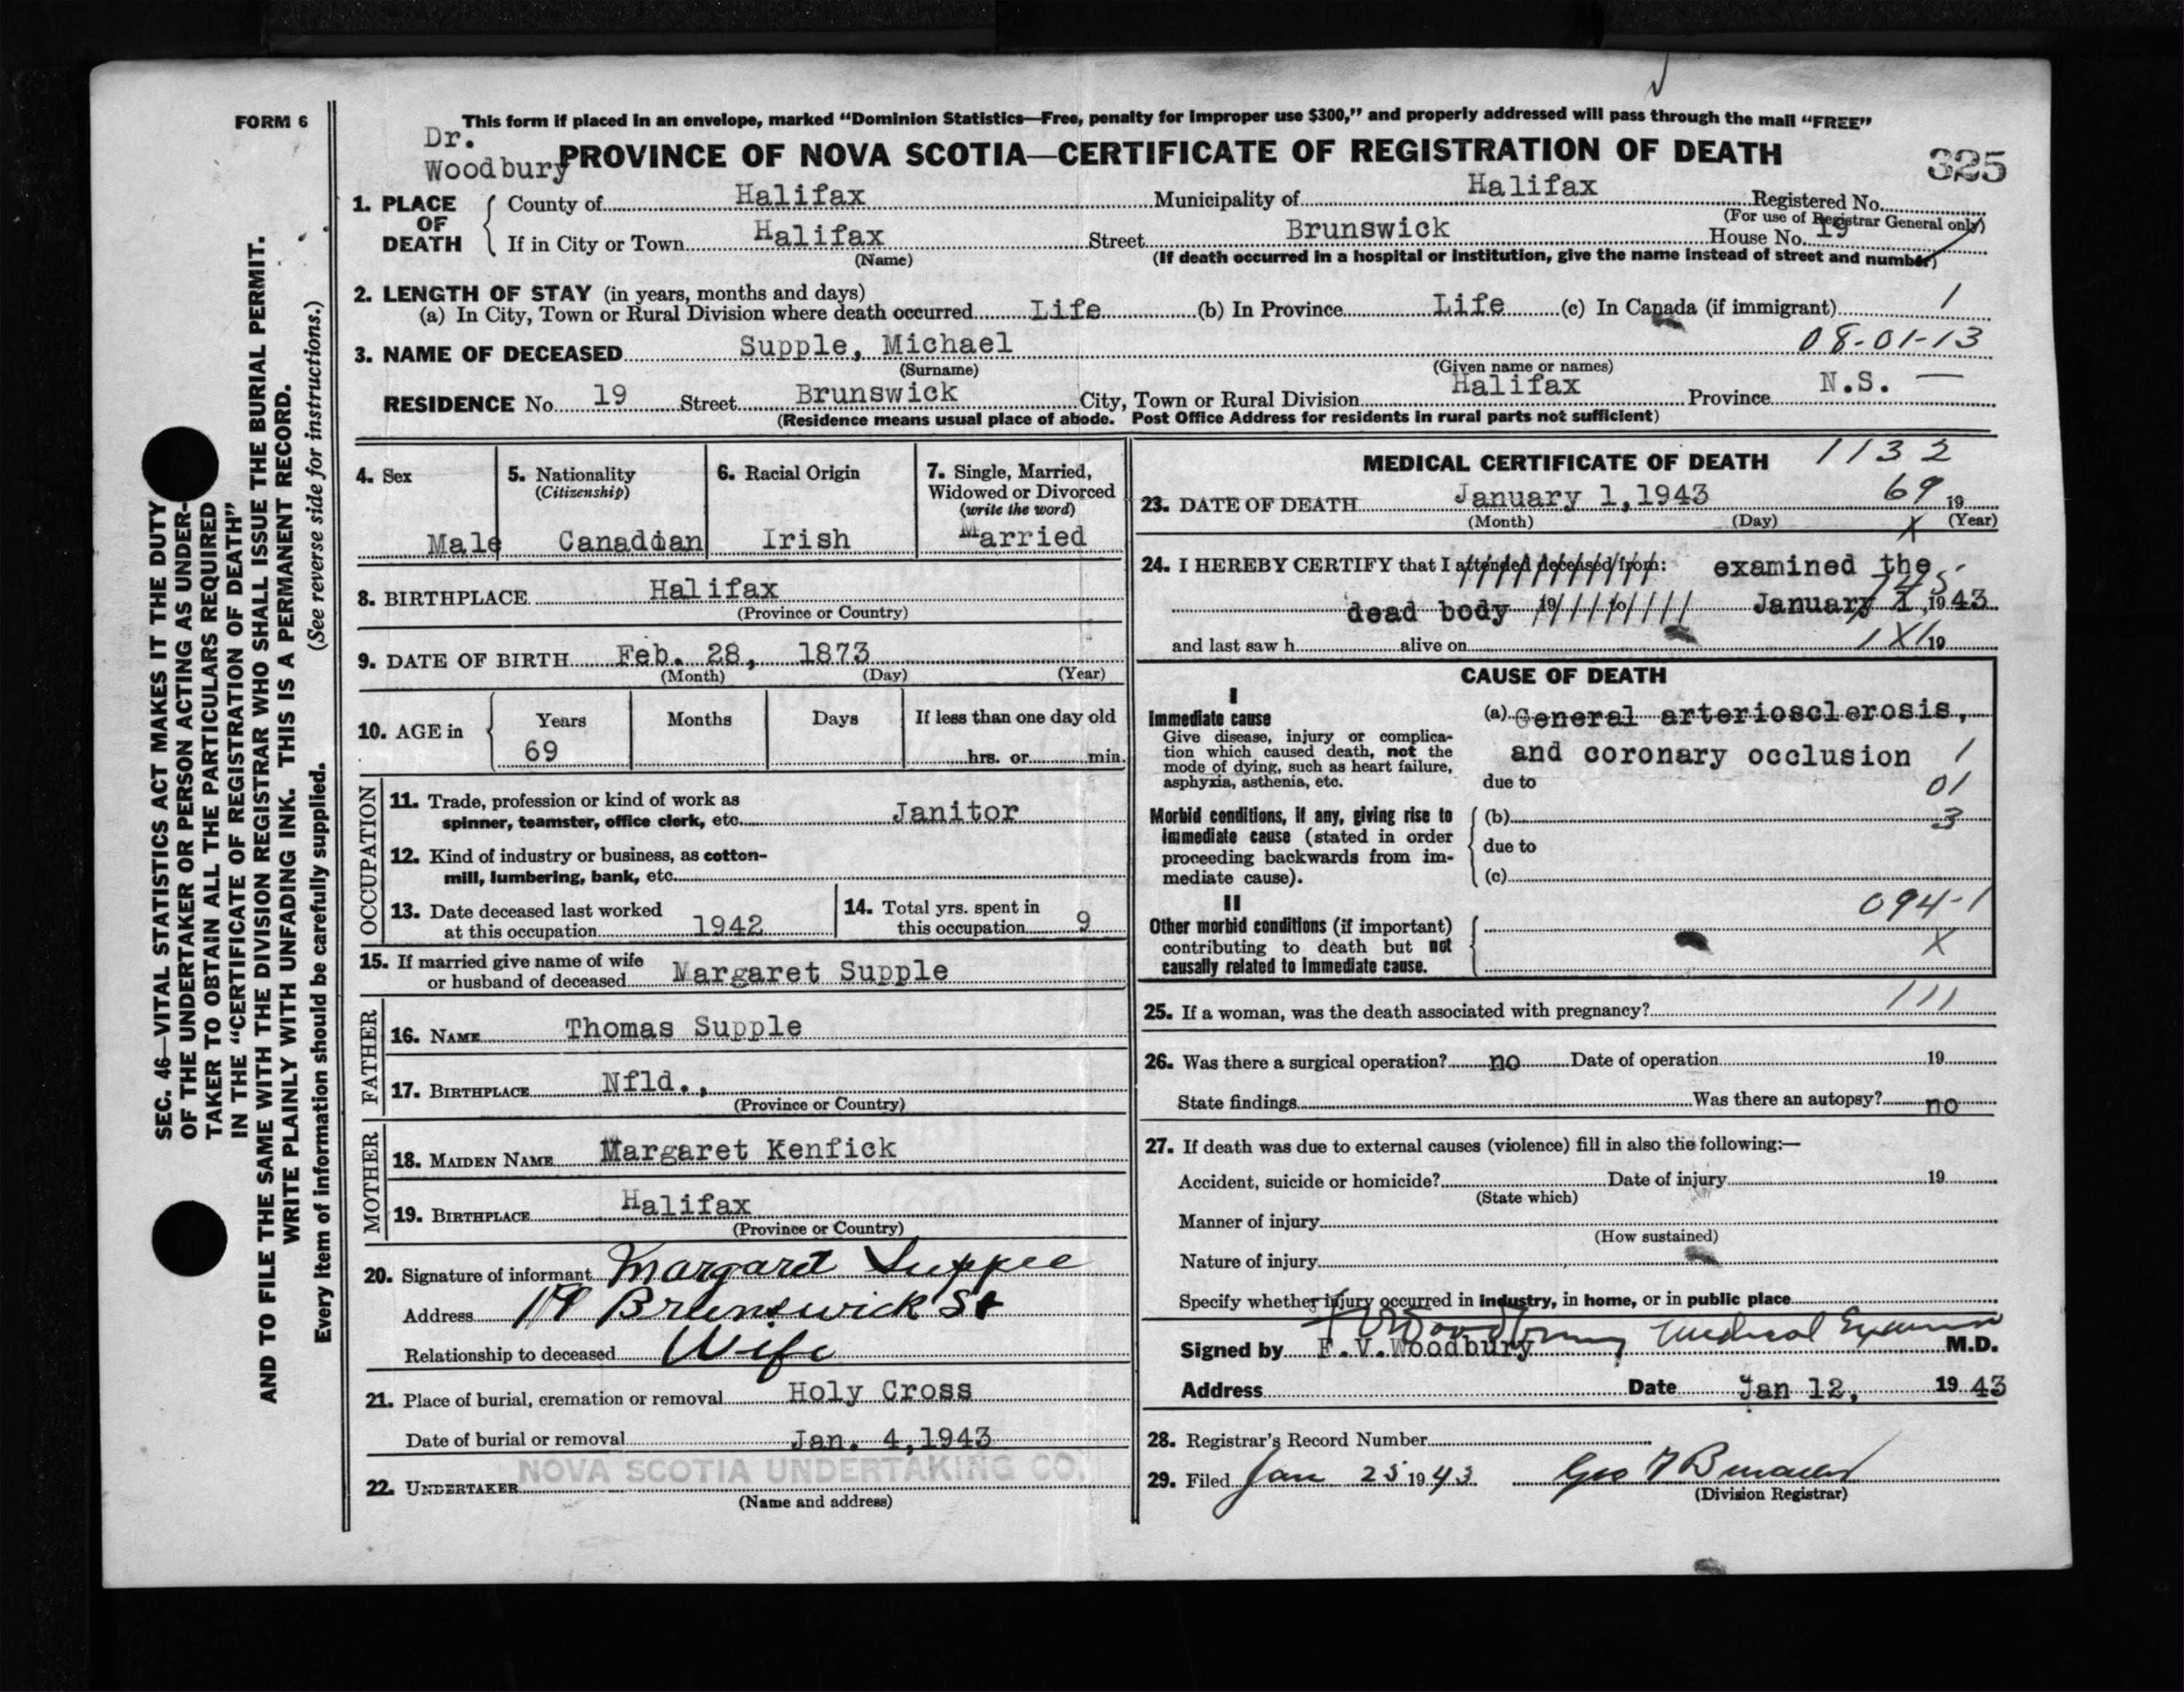 FORM 6
This form if placed in an envelope, marked “Dominion Statistics—Free, penalty for improper use $300,” and properly addressed will pass through the mail “FREE”
Dr.
Woodbury
PROVINCE OF NOVA SCOTIA—CERTIFICATE OF REGISTRATION OF DEATH
325
1. PLACE OF DEATH
County of Halifax Municipality of Halifax Registered No.
(For use of Registrar General only)
If in City or Town Halifax Street Brunswick House No. 19
(Name) (If death occurred in a hospital or institution, give the name instead of street and number)
2. LENGTH OF STAY (in years, months and days)
(a) In City, Town or Rural Division where death occurred Life (b) In Province Life (c) In Canada (if immigrant) 1
3. NAME OF DECEASED Supple, Michael 08-01-13
(Surname) (Given name or names)
RESIDENCE No. 19 Street Brunswick City, Town or Rural Division Halifax Province N.S. —
(Residence means usual place of abode. Post Office Address for residents in rural parts not sufficient)
4. Sex
Male
5. Nationality
(Citizenship)
Canadian
6. Racial Origin
Irish
7. Single, Married,
Widowed or Divorced
(write the word)
Married
8. BIRTHPLACE Halifax
(Province or Country)
9. DATE OF BIRTH Feb. 28, 1873
(Month) (Day) (Year)
10. AGE in Years Months Days If less than one day old
69 hrs. or min.
OCCUPATION
11. Trade, profession or kind of work as
spinner, teamster, office clerk, etc. Janitor
12. Kind of industry or business, as cotton-
mill, lumbering, bank, etc.
13. Date deceased last worked
at this occupation 1942
14. Total yrs. spent in
this occupation 9
15. If married give name of wife
or husband of deceased Margaret Supple
FATHER
16. NAME Thomas Supple
17. BIRTHPLACE Nfld.,
(Province or Country)
MOTHER
18. MAIDEN NAME Margaret Kenfick
19. BIRTHPLACE Halifax
(Province or Country)
20. Signature of informant Margaret Supple
Address 19 Brunswick St
Relationship to deceased Wife
21. Place of burial, cremation or removal Holy Cross
Date of burial or removal Jan. 4, 1943
NOVA SCOTIA UNDERTAKING CO.
22. UNDERTAKER
(Name and address)
MEDICAL CERTIFICATE OF DEATH 1132
23. DATE OF DEATH January 1, 1943 69 19
(Month) (Day) X (Year)
24. I HEREBY CERTIFY that I attended deceased from: examined the
dead body 19 to January 1, 1943
and last saw h alive on 1 X1 19
CAUSE OF DEATH
I
Immediate cause
Give disease, injury or complica-
tion which caused death, not the
mode of dying, such as heart failure,
asphyxia, asthenia, etc.
(a) General arteriosclerosis,
and coronary occlusion 1
due to 01
Morbid conditions, if any, giving rise to
immediate cause (stated in order
proceeding backwards from im-
mediate cause).
(b) 3
due to
(c)
II
Other morbid conditions (if important)
contributing to death but not
causally related to immediate cause.
094-1
X
25. If a woman, was the death associated with pregnancy? 111
26. Was there a surgical operation? no Date of operation 19
State findings Was there an autopsy? no
27. If death was due to external causes (violence) fill in also the following:—
Accident, suicide or homicide? Date of injury 19
(State which)
Manner of injury
(How sustained)
Nature of injury
Specify whether injury occurred in industry, in home, or in public place
FVWoodbury, Medical Examiner
Signed by F.V.Woodbury M.D.
Address Date Jan 12, 1943
28. Registrar's Record Number
29. Filed Jan 25 1943
(Division Registrar)
SEC. 46—VITAL STATISTICS ACT MAKES IT THE DUTY
OF THE UNDERTAKER OR PERSON ACTING AS UNDER-
TAKER TO OBTAIN ALL THE PARTICULARS REQUIRED
IN THE “CERTIFICATE OF REGISTRATION OF DEATH”
AND TO FILE THE SAME WITH THE DIVISION REGISTRAR WHO SHALL ISSUE THE BURIAL PERMIT.
WRITE PLAINLY WITH UNFADING INK. THIS IS A PERMANENT RECORD.
Every item of information should be carefully supplied. (See reverse side for instructions.)